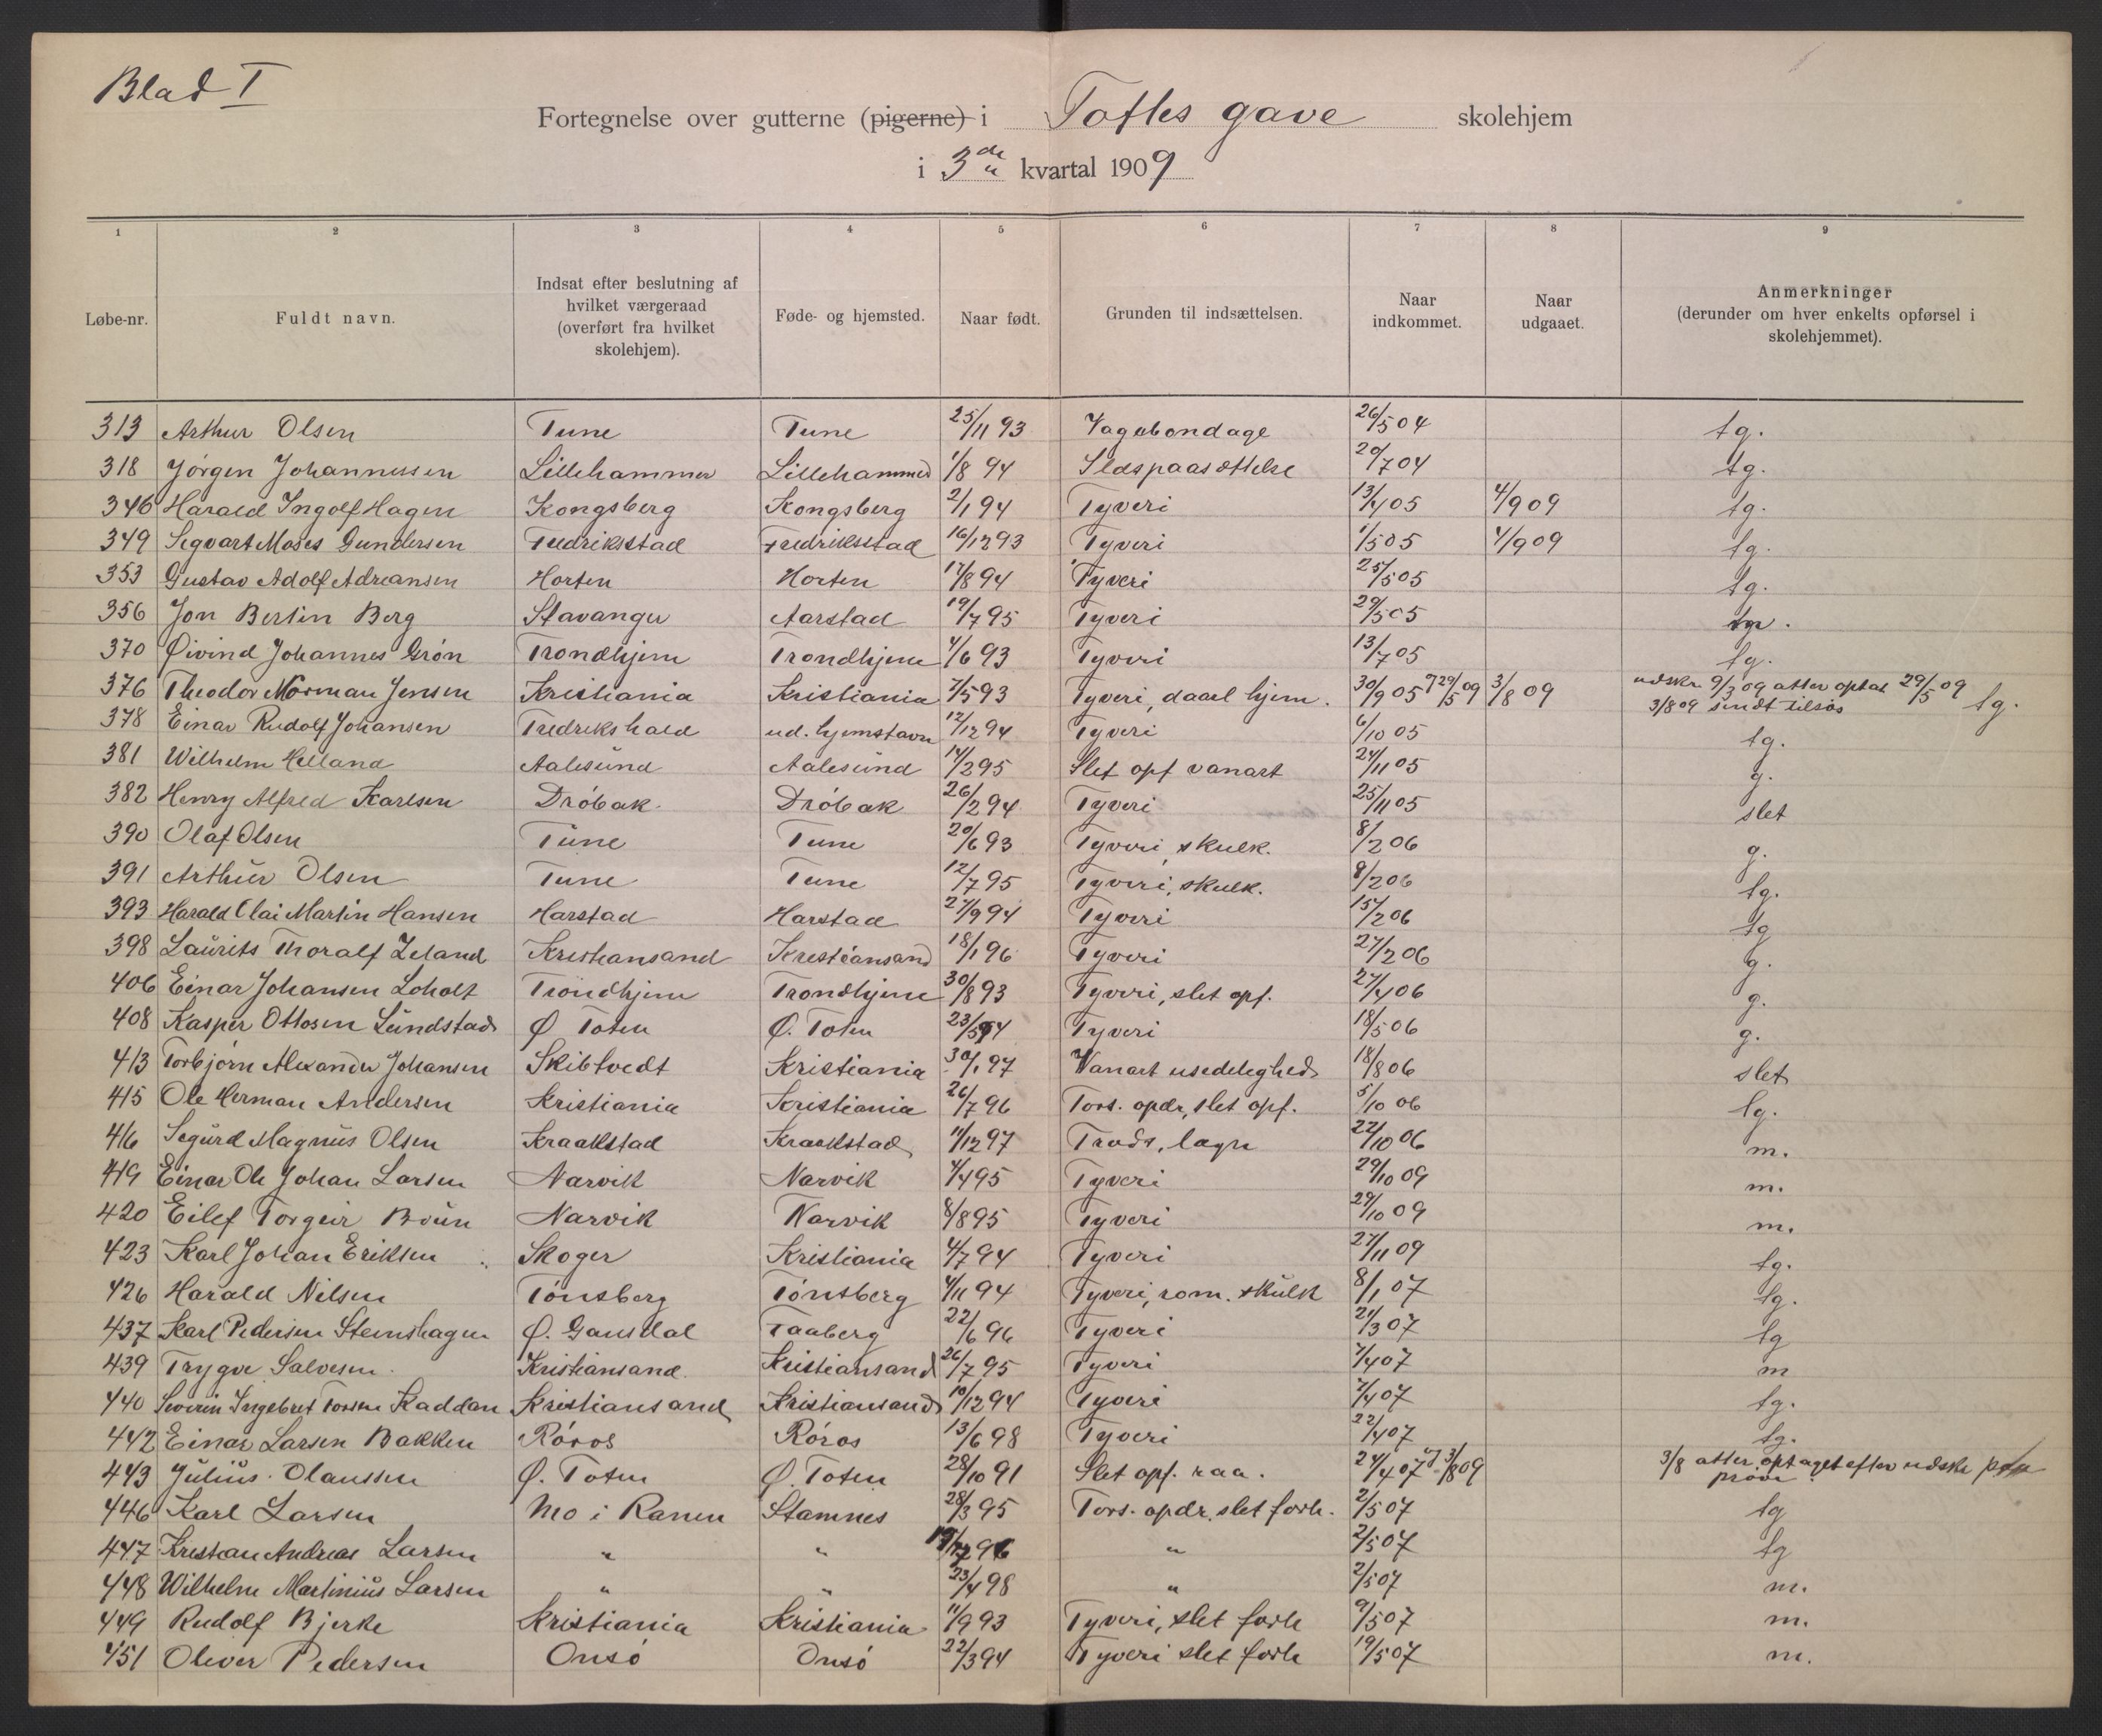 Blad I
Fortegnelse over gutterne (pigerne) i Toftes gave skolehjem
i 3de kvartal 1909
1 2 3 4 5 6 7 8 9
Løbe-nr. Fuldt navn. Indsat efter beslutning af hvilket værgeraad (overført fra hvilket skolehjem). Føde- og hjemsted. Naar født. Grunden til indsættelsen. Naar indkommet. Naar udgaaet. Anmerkninger (derunder om hver enkelts opførsel i skolehjemmet).
313 Arthur Olsen Tune Tune 25/11 93 Vagabondage 26/5 04 tg.
318 Jörgen Johannessen Lillehammer Lillehammer 1/8 94 Ildspaasættelse 20/7 04 tg.
346 Harald Ingolf Hagen Kongsberg Kongsberg 2/1 94 Tyveri 13/4 05 4/9 09 tg.
349 Sigvart Moses Gundersen Fredriksstad Fredriksstad 16/12 93 Tyveri 1/5 05 4/9 09 tg.
353 Gustav Adolf Adreansen Horten Horten 17/8 94 Tyveri 25/5 05 tg.
356 Jon Bertin Berg Stavanger Aarstad 19/7 95 Tyveri 29/5 05
370 Øivind Johannes Grön Trondhjem Trondhjem 4/6 93 Tyveri 13/7 05 tg.
376 Theodor Norman Jensen Kristiania Kristiania 7/5 93 Tyveri, daarl hjem. 30/9 05 29/5 09 3/8 09 udskr. 9/3 09 atter optat 29/5 09
3/8 09 sendt tilsös tg.
378 Einar Rudolf Johansen Fredrikshald ud. hjemstavn 12/12 94 Tyveri 6/10 05 tg.
381 Wilhelm Helland Aalesund Aalesund 14/2 95 Slet opf vanart 24/11 05 g.
382 Henry Alfred Karlsen Dröbak Dröbak 26/2 94 Tyveri 25/11 05 slet
390 Olaf Olsen Tune Tune 20/6 93 Tyveri, skulk. 8/2 06 g.
391 Arthur Olsen Tune Tune 12/7 95 Tyveri, skulk. 8/2 06 tg.
393 Harald Olai Martin Hansen Harstad Harstad 27/9 94 Tyveri 15/2 06 tg
398 Laurits Thoralf Zeland Kristiansand Kristiansand 18/1 96 Tyveri 27/2 06 g.
406 Einar Johansen Loholt Trondhjem Trondhjem 30/8 93 Tyveri, slet opf. 27/4 06 g.
408 Kasper Ottosen Lundstad Ø Toten Ø. Toten 23/5 94 Tyveri 18/5 06 g.
413 Torbjörn Alexander Johansen Skibtvedt Kristiania 30/1 97 Vanart usedelighed 18/8 06 slet
415 Ole Herman Andersen Kristiania Kristiania 26/7 96 Fors. opdr, slet opf. 5/10 06 tg.
416 Sigurd Magnus Olsen Kraakstad Kraakstad 11/12 97 Trods, løgn 22/10 06 m.
419 Einar Ole Johan Larsen Narvik Narvik 4/4 95 Tyveri 29/10 09 m.
420 Eilef Torgeir Bruun Narvik Narvik 8/8 95 Tyveri 29/10 09 m.
423 Karl Johan Eriksen Skoger Kristiania 4/7 94 Tyveri 27/11 09 tg.
426 Harald Nilsen Tönsberg Tönsberg 4/11 94 Tyveri, rom. skulk 8/1 07 tg.
437 Karl Pedersen Stenshagen Ø. Gausdal Faaberg 22/6 96 Tyveri 21/3 07 tg
439 Trygve Salvesen Kristiansand Kristiansand 26/7 95 Tyveri 7/4 07 m
440 Severin Ingebret Torsen Kaddan Kristiansand Kristiansand 10/12 94 Tyveri 7/4 07 tg.
442 Einar Larsen Bakken Röros Röros 13/6 98 Tyveri 22/4 07 tg.
443 Julius Olaussen Ø. Toten Ø. Toten 28/10 91 Slet opf. raa. 24/4 07 3/8 09 3/8 atter optaget efter udskr
pröve
446 Karl Larsen Mo i Ranen Stamnes 28/3 95 Fors. opdr, slet forh. 2/5 07 tg
447 Kristian Andreas Larsen " " 96 " 2/5 07 tg
448 Wilhelm Martinius Larsen " " 23/4 98 " 2/5 07 m.
449 Rudolf Bjerke Kristiania Kristiania 11/9 93 Tyveri, slet forh 9/5 07 m.
451 Oliver Pedersen Onsö Onsö 22/3 94 Tyveri slet forh 19/5 07 m.